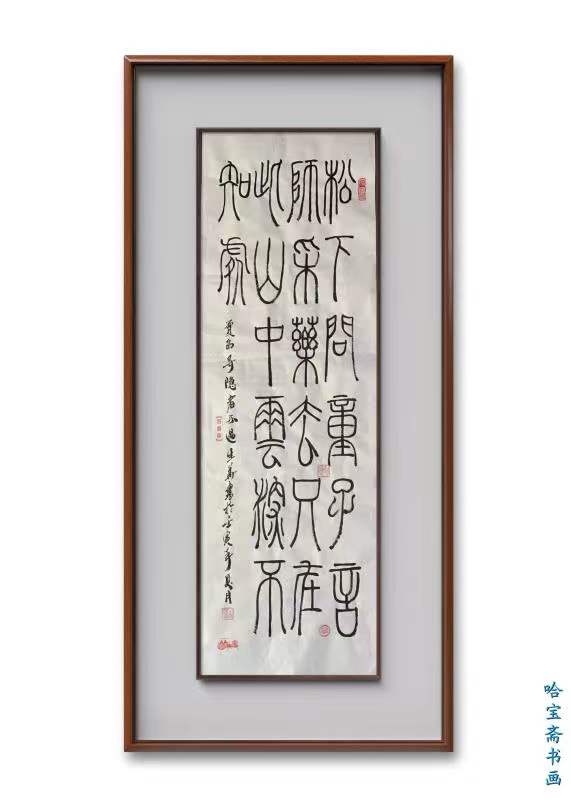 松下問童子言
師采藥去只在
此山中雲深不
知處
賈島尋隱者不遇 書於壬寅年夏月
哈宝斋书画